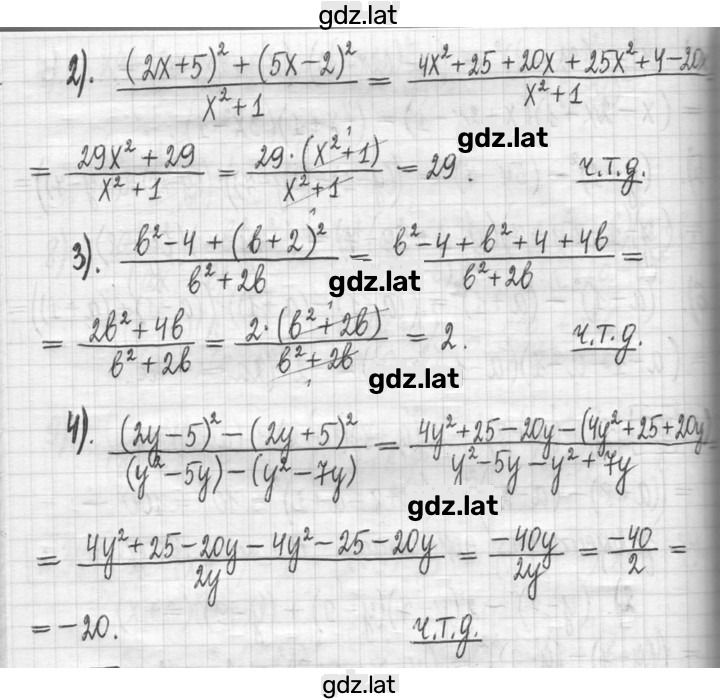 gdz.lat
2). ((2x+5)² + (5x−2)²)/(x²+1) = (4x²+25+20x+25x²+4−20x)/(x²+1)
gdz.lat
= (29x²+29)/(x²+1) = (29·(x²+1))/(x²+1) = 29. ч.т.д.
3). (b²−4+(b+2)²)/(b²+2b) = (b²−4+b²+4+4b)/(b²+2b) =
gdz.lat
= (2b²+4b)/(b²+2b) = (2·(b²+2b))/(b²+2b) = 2. ч.т.д.
gdz.lat
4). ((2y−5)²−(2y+5)²)/((y²−5y)−(y²−7y)) = (4y²+25−20y−(4y²+25+20y))/(y²−5y−y²+7y)
gdz.lat
= (4y²+25−20y−4y²−25−20y)/(2y) = (−40y)/(2y) = (−40)/2 =
= −20. ч.т.д.
gdz.lat
gdz.lat